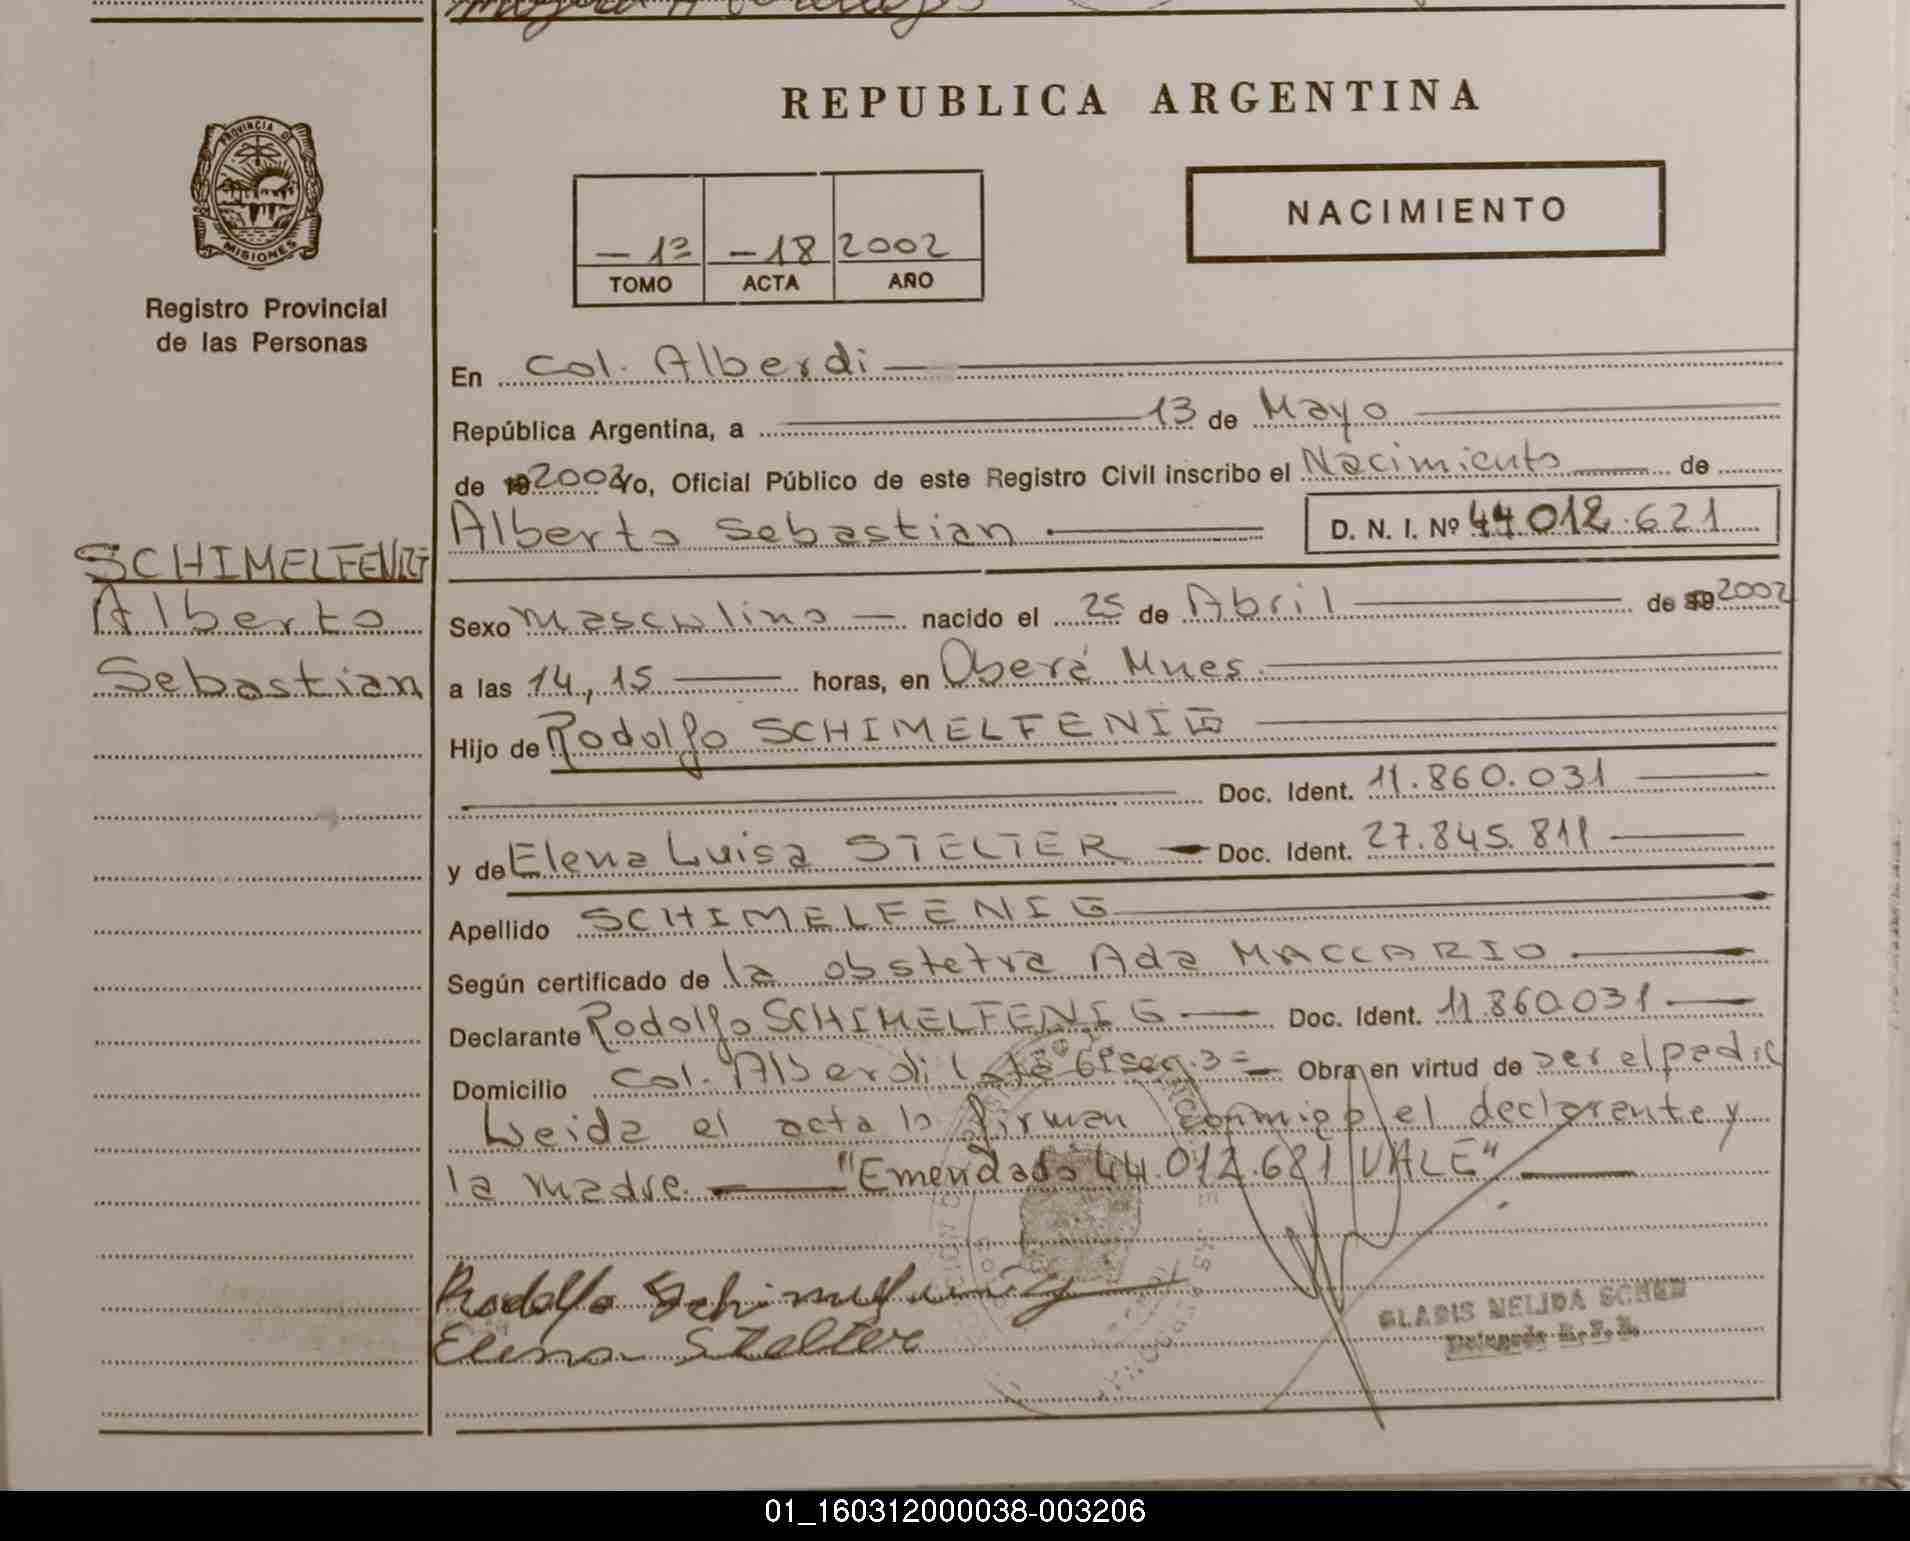 REPUBLICA ARGENTINA
PROVINCIA DE
MISIONES
Registro Provincial
de las Personas
NACIMIENTO
- 1º - 18 2002
TOMO ACTA AÑO
En Col. Alberdi
República Argentina, a 13 de Mayo
de 19 2002 Yo, Oficial Público de este Registro Civil inscribo el Nacimiento de
Alberto Sebastian D. N. I. Nº 44 012.621
SCHIMELFENIG
Alberto
Sebastian
Sexo Masculino nacido el 25 de Abril de 19 2002
a las 14,15 horas, en Oberá Mnes.
Hijo de Rodolfo SCHIMELFENIG
Doc. Ident. 11.860.031
y de Elena Luisa STELTER Doc. Ident. 27.845.811
Apellido SCHIMELFENIG
Según certificado de la obstetra Ada MACCARIO
Declarante Rodolfo SCHIMELFENIG Doc. Ident. 11.860.031
Domicilio Col. Alberdi Lote 61 Sec. 3ª Obra en virtud de ser el padre
Leida el acta la firman conmigo el declarante y
la madre. "Emendado 44.012.621 VALE"
Rodolfo Schimelfenig
Elena Stelter
GLADIS NELIDA
Delegada R.P.P.
01_160312000038-003206